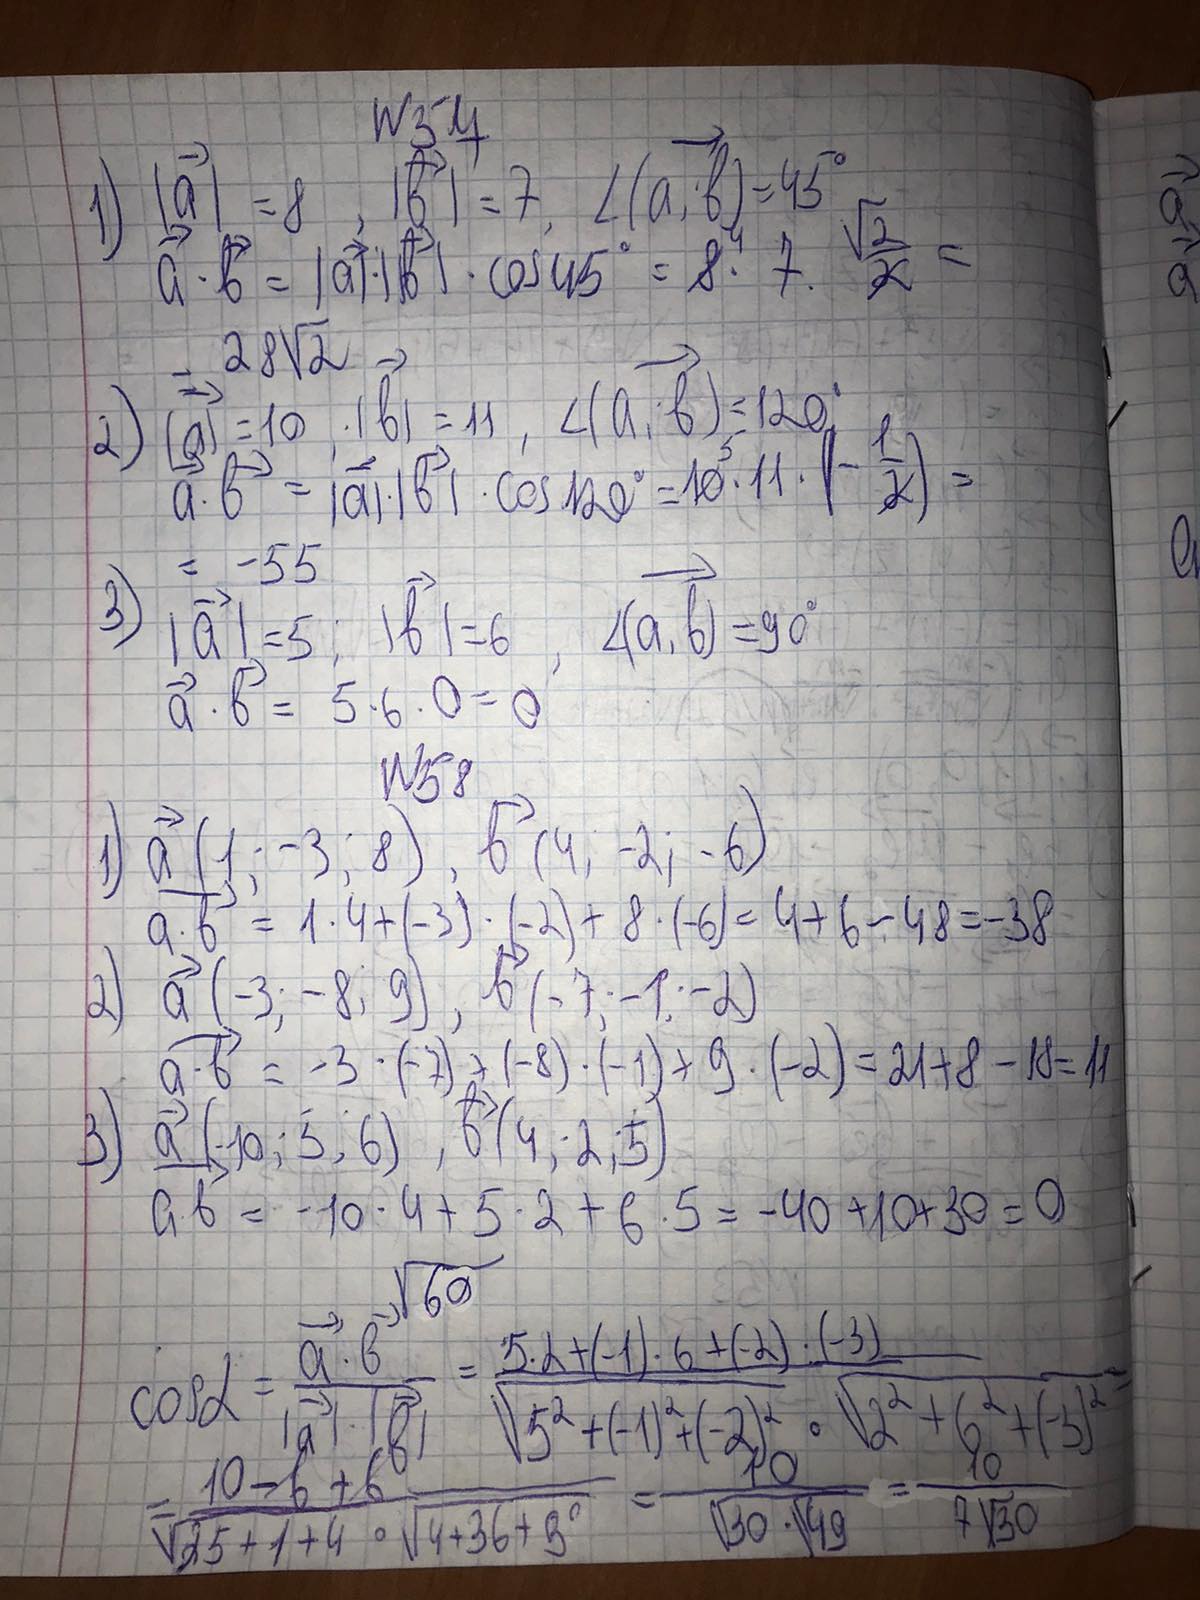 N54
1) |a⃗| = 8, |b⃗| = 7, ∠(a, b) = 45°
a⃗·b⃗ = |a⃗|·|b⃗|·cos45° = 8⁴·7·√2/2 =
= 28√2
2) |a⃗| = 10, |b⃗| = 11, ∠(a; b) = 120°
a⃗·b⃗ = |a⃗|·|b⃗|·cos120° = 10⁵·11·(-1/2) =
= -55
3) |a⃗| = 5; |b⃗| = 6, ∠(a, b) = 90°
a⃗·b⃗ = 5·6·0 = 0
N58
1) a⃗ (1; -3; 8), b⃗ (4; -2; -6)
a·b = 1·4+(-3)·(-2)+8·(-6) = 4+6-48 = -38
2) a⃗ (-3; -8; 9), b⃗ (-7; -1; -2)
a·b = -3·(-7)+(-8)·(-1)+9·(-2) = 21+8-18 = 11
3) a⃗ (-10; 5; 6), b⃗ (4; 2; 5)
a·b = -10·4+5·2+6·5 = -40+10+30 = 0
√60
cosα = a⃗·b⃗ / |a⃗|·|b⃗| = 5·2+(-1)·6+(-2)·(-3) / √5²+(-1)²+(-2)² · √2²+6²+(-3)² =
= 10-6+6 / √25+1+4 · √4+36+9 = 10 / √30·√49 = 10 / 7√30